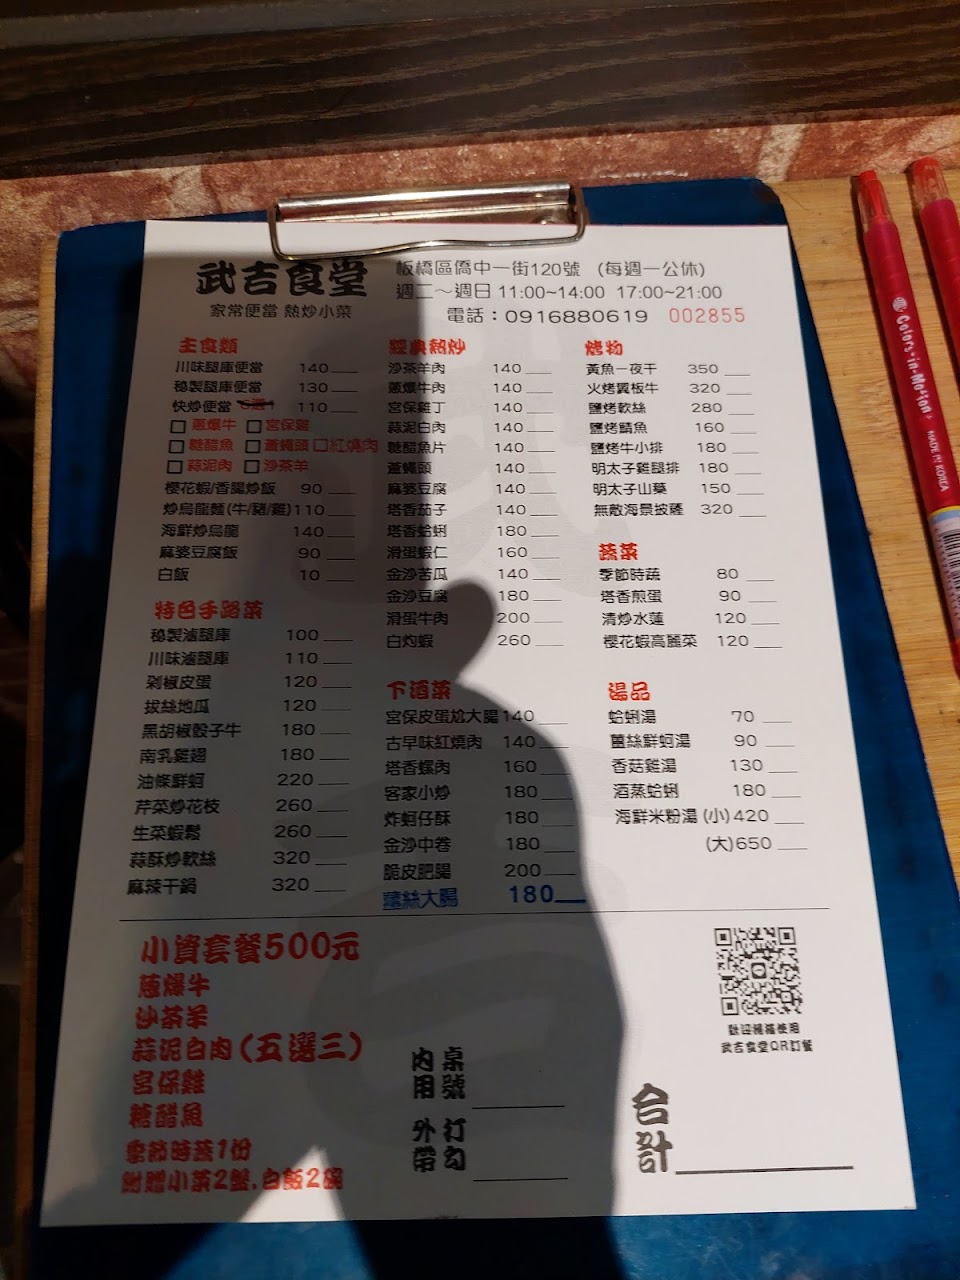 武吉食堂
家常便當 熱炒小菜
板橋區僑中一街120號 (每週一公休)
週二～週日 11:00~14:00 17:00~21:00
電話：0916880619 002855
主食類
川味腿庫便當 140
秘製腿庫便當 130
快炒便當 6選1 110
□蔥爆牛 □宮保雞
□糖醋魚 □蒼蠅頭 □紅燒肉
□蒜泥肉 □沙茶羊
櫻花蝦/香腸炒飯 90
炒烏龍麵(牛/豬/雞) 110
海鮮炒烏龍 140
麻婆豆腐飯 90
白飯 10
特色手路菜
秘製滷腿庫 100
川味滷腿庫 110
剁椒皮蛋 120
拔絲地瓜 120
黑胡椒骰子牛 180
南乳雞翅 180
油條鮮蚵 220
芹菜炒花枝 260
生菜蝦鬆 260
蒜酥炒軟絲 320
麻辣干鍋 320
經典熱炒
沙茶羊肉 140
蔥爆牛肉 140
宮保雞丁 140
蒜泥白肉 140
糖醋魚片 140
蒼蠅頭 140
麻婆豆腐 140
塔香茄子 140
塔香蛤蜊 180
滑蛋蝦仁 160
金沙苦瓜 140
金沙豆腐 180
滑蛋牛肉 200
白灼蝦 260
下酒菜
宮保皮蛋尬大腸 140
古早味紅燒肉 140
塔香螺肉 160
客家小炒 180
炸蚵仔酥 180
金沙中卷 180
脆皮肥腸 200
薑絲大腸 180
烤物
黃魚一夜干 350
火烤翼板牛 320
鹽烤軟絲 280
鹽烤鯖魚 160
鹽烤牛小排 180
明太子雞腿排 180
明太子山藥 150
無敵海景披薩 320
蔬菜
季節時蔬 80
塔香煎蛋 90
清炒水蓮 120
櫻花蝦高麗菜 120
湯品
蛤蜊湯 70
薑絲鮮蚵湯 90
香菇雞湯 130
酒蒸蛤蜊 180
海鮮米粉湯 (小) 420
(大) 650
小資套餐500元
蔥爆牛
沙茶羊
蒜泥白肉(五選三)
宮保雞
糖醋魚
季節時蔬1份
附贈小菜2盤,白飯2碗
內用 桌號
外帶 打勾
歡迎掃描使用
武吉食堂QR訂餐
合計
Colors-in-Motion
MADE IN KOREA